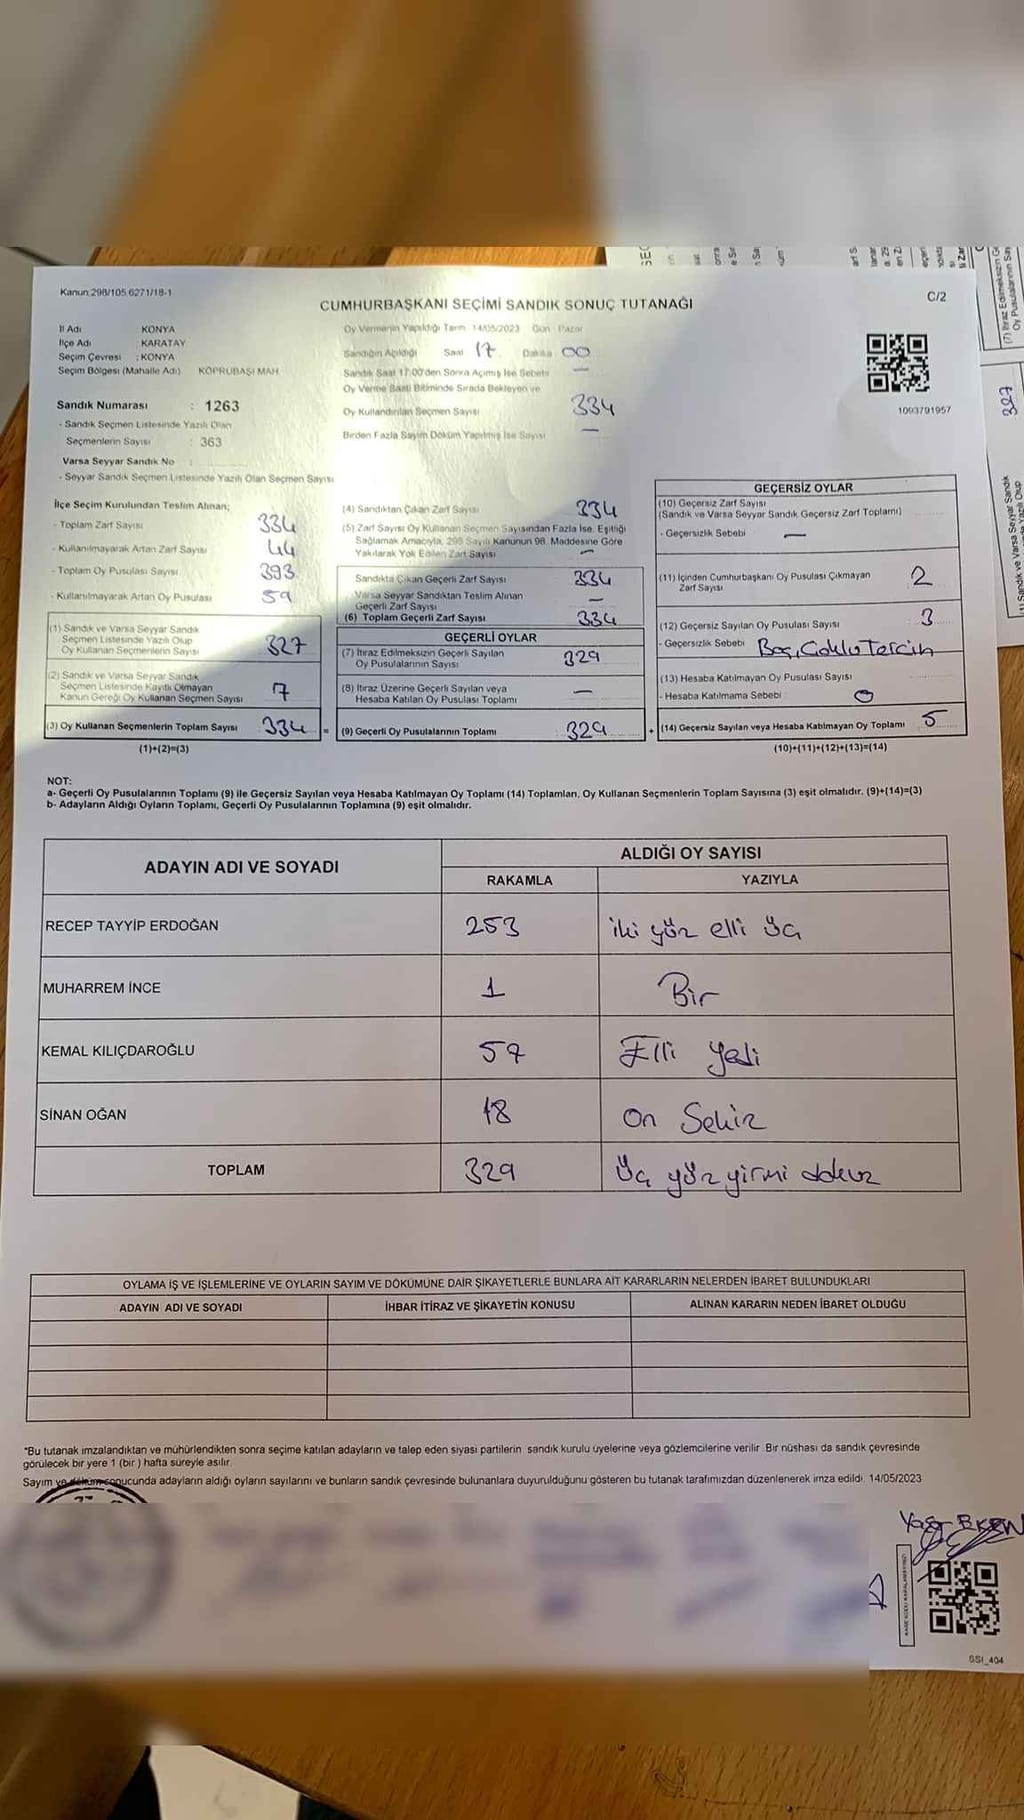 Kanun:298/105 6271/18-1
CUMHURBAŞKANI SEÇİMİ SANDIK SONUÇ TUTANAĞI
C/2
İl Adı KONYA
İlçe Adı KARATAY
Seçim Çevresi : KONYA
Seçim Bölgesi (Mahalle Adı) KÖPRÜBAŞI MAH
Sandık Numarası : 1263
- Sandık Seçmen Listesinde Yazılı Olan
Seçmenlerin Sayısı : 363
Varsa Seyyar Sandık No :
- Seyyar Sandık Seçmen Listesinde Yazılı Olan Seçmen Sayısı
Oy Vermenin Yapıldığı Tarih 14/05/2023 Gün Pazar
Sandığın Açıldığı Saat 17 Dakika 00
Sandık Saat 17:00'den Sonra Açılmış İse Sebebi —
Oy Verme Saati Bitiminde Sırada Bekleyen ve
Oy Kullandırılan Seçmen Sayısı 334
Birden Fazla Sayım Döküm Yapılmış İse Sayısı —
1093791957
İlçe Seçim Kurulundan Teslim Alınan;
- Toplam Zarf Sayısı 334
- Kullanılmayarak Artan Zarf Sayısı 44
- Toplam Oy Pusulası Sayısı 393
- Kullanılmayarak Artan Oy Pusulası 59
(1) Sandık ve Varsa Seyyar Sandık
Seçmen Listesinde Yazılı Olup
Oy Kullanan Seçmenlerin Sayısı 327
(2) Sandık ve Varsa Seyyar Sandık
Seçmen Listesinde Kayıtlı Olmayan
Kanun Gereği Oy Kullanan Seçmen Sayısı 7
(3) Oy Kullanan Seçmenlerin Toplam Sayısı 334 =
(1)+(2)=(3)
(4) Sandıktan Çıkan Zarf Sayısı 334
(5) Zarf Sayısı Oy Kullanan Seçmen Sayısından Fazla İse, Eşitliği
Sağlamak Amacıyla, 298 Sayılı Kanunun 98. Maddesine Göre
Yakılarak Yok Edilen Zarf Sayısı —
Sandıkta Çıkan Geçerli Zarf Sayısı 334
Varsa Seyyar Sandıktan Teslim Alınan
Geçerli Zarf Sayısı —
(6) Toplam Geçerli Zarf Sayısı 334
GEÇERLİ OYLAR
(7) İtiraz Edilmeksizin Geçerli Sayılan
Oy Pusulalarının Sayısı 329
(8) İtiraz Üzerine Geçerli Sayılan veya
Hesaba Katılan Oy Pusulası Toplamı —
(9) Geçerli Oy Pusulalarının Toplamı 329 +
GEÇERSİZ OYLAR
(10) Geçersiz Zarf Sayısı
(Sandık ve Varsa Seyyar Sandık Geçersiz Zarf Toplamı)
- Geçersizlik Sebebi —
(11) İçinden Cumhurbaşkanı Oy Pusulası Çıkmayan
Zarf Sayısı 2
(12) Geçersiz Sayılan Oy Pusulası Sayısı 3
- Geçersizlik Sebebi Boş, Çoklu Tercih
(13) Hesaba Katılmayan Oy Pusulası Sayısı
- Hesaba Katılmama Sebebi 0
(14) Geçersiz Sayılan veya Hesaba Katılmayan Oy Toplamı 5
(10)+(11)+(12)+(13)=(14)
NOT:
a- Geçerli Oy Pusulalarının Toplamı (9) ile Geçersiz Sayılan veya Hesaba Katılmayan Oy Toplamı (14) Toplamları, Oy Kullanan Seçmenlerin Toplam Sayısına (3) eşit olmalıdır. (9)+(14)=(3)
b- Adayların Aldığı Oyların Toplamı, Geçerli Oy Pusulalarının Toplamına (9) eşit olmalıdır.
ADAYIN ADI VE SOYADI
ALDIĞI OY SAYISI
RAKAMLA YAZIYLA
RECEP TAYYİP ERDOĞAN 253 iki yüz elli üç
MUHARREM İNCE 1 Bir
KEMAL KILIÇDAROĞLU 57 Elli Yedi
SİNAN OĞAN 18 on Sekiz
TOPLAM 329 Üç yüz yirmi dokuz
OYLAMA İŞ VE İŞLEMLERİNE VE OYLARIN SAYIM VE DÖKÜMÜNE DAİR ŞİKAYETLERLE BUNLARA AİT KARARLARIN NELERDEN İBARET BULUNDUKLARI
ADAYIN ADI VE SOYADI İHBAR İTİRAZ VE ŞİKAYETİN KONUSU ALINAN KARARIN NEDEN İBARET OLDUĞU
*Bu tutanak imzalandıktan ve mühürlendikten sonra seçime katılan adayların ve talep eden siyasi partilerin sandık kurulu üyelerine veya gözlemcilerine verilir. Bir nüshası da sandık çevresinde
görülecek bir yere 1 (bir ) hafta süreyle asılır.
Sayım ve döküm sonucunda adayların aldığı oyların sayılarını ve bunların sandık çevresinde bulunanlara duyurulduğunu gösteren bu tutanak tarafımızdan düzenlenerek imza edildi. 14/05/2023
SSI_404